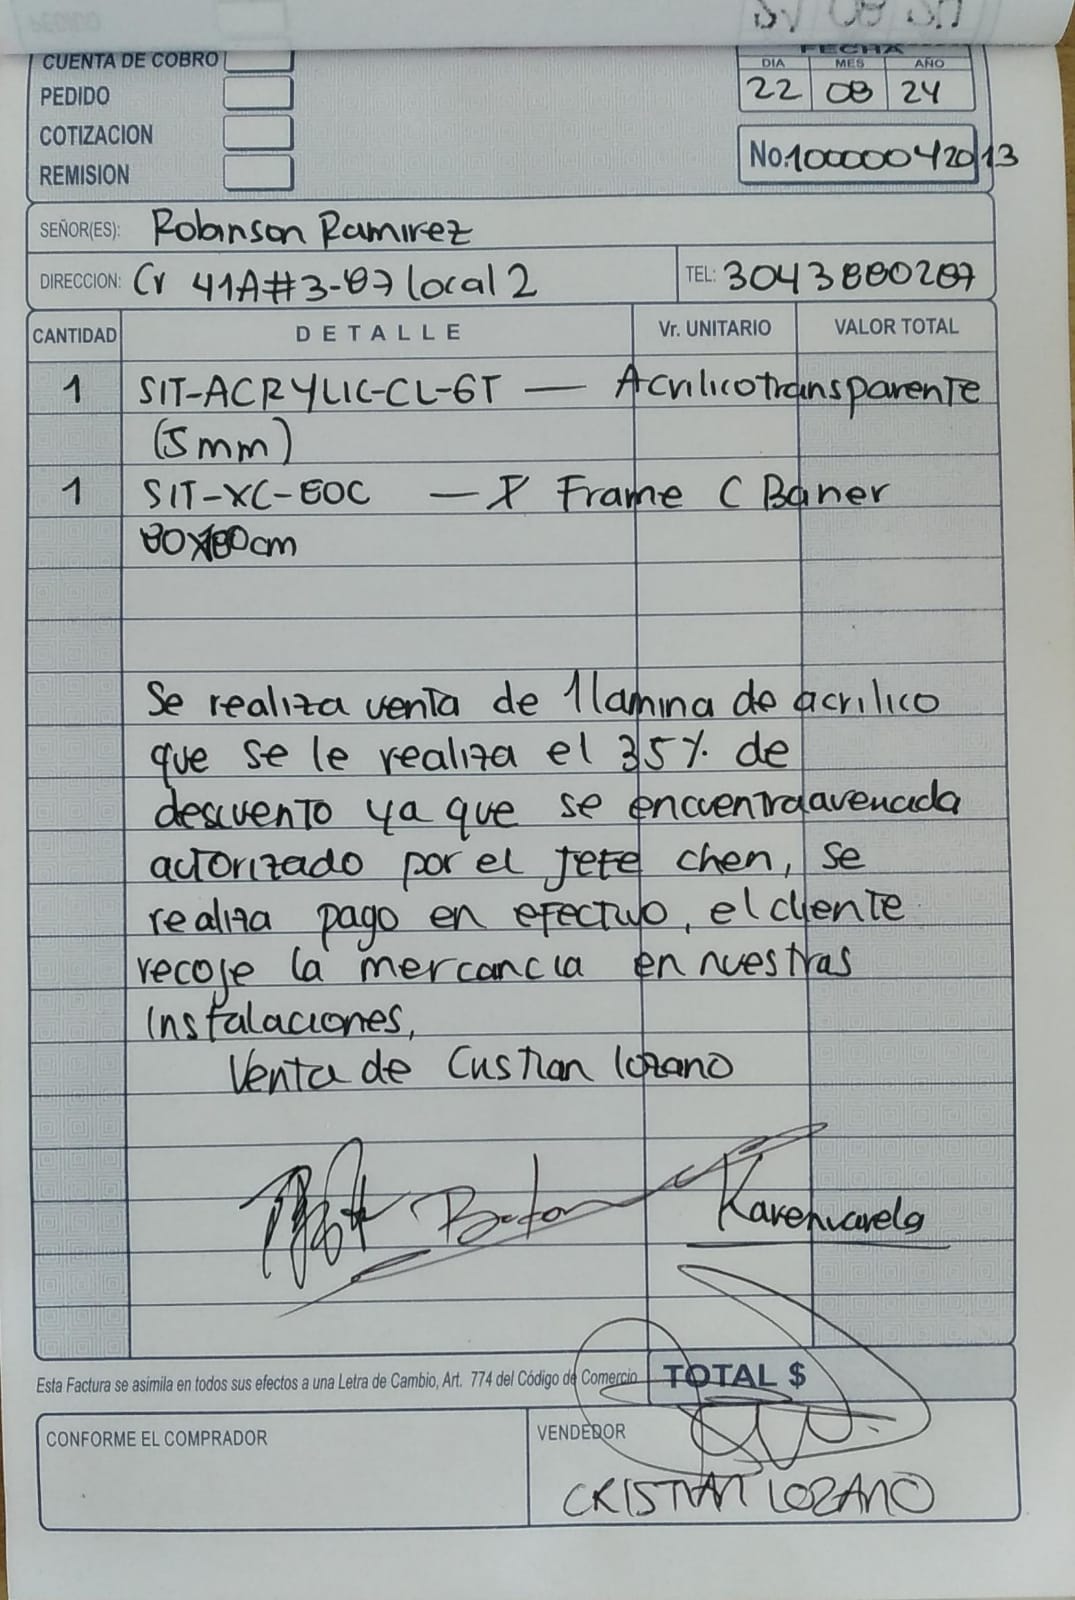 CUENTA DE COBRO
PEDIDO
COTIZACION
REMISION
FECHA
DIA MES AÑO
22 08 24
No. 10000042013
SEÑOR(ES): Robinson Ramirez
DIRECCION: Cr 41A#3-87 local 2 TEL: 3043880287
CANTIDAD DETALLE Vr. UNITARIO VALOR TOTAL
1 SIT-ACRYLIC-CL-6T — Acrilico transparente
(5mm)
1 SIT-XC-80C — X Frame C Baner
80x180cm
Se realiza venta de 1 lamina de acrilico
que se le realiza el 35% de
descuento ya que se encuentra
actorizado por el Jefe chen, se
realiza pago en efectivo, el cliente
recoje la mercancia en nuestras
Instalaciones,
Venta de Cristian lozano
Karen varela
Esta Factura se asimila en todos sus efectos a una Letra de Cambio, Art. 774 del Código de Comercio
TOTAL $
CONFORME EL COMPRADOR
VENDEDOR
CRISTIAN LOZANO